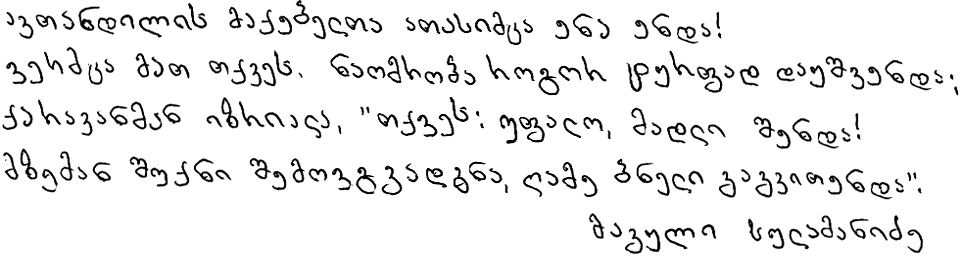 ავთანდილის მაქებელთა ათასიმცა ენა ენდა!
ვერმცა მათ თქვეს. ნაომრობა როგორ ტურფად დაუშვენდა;
ქარავანმან იზრიალა, "თქვეს: უფალო, მადლი შენდა!
მზემან შუქნი შემოგვადგნა, ღამე ბნელი გაგვითენდა".
მაგული სულამანიძე